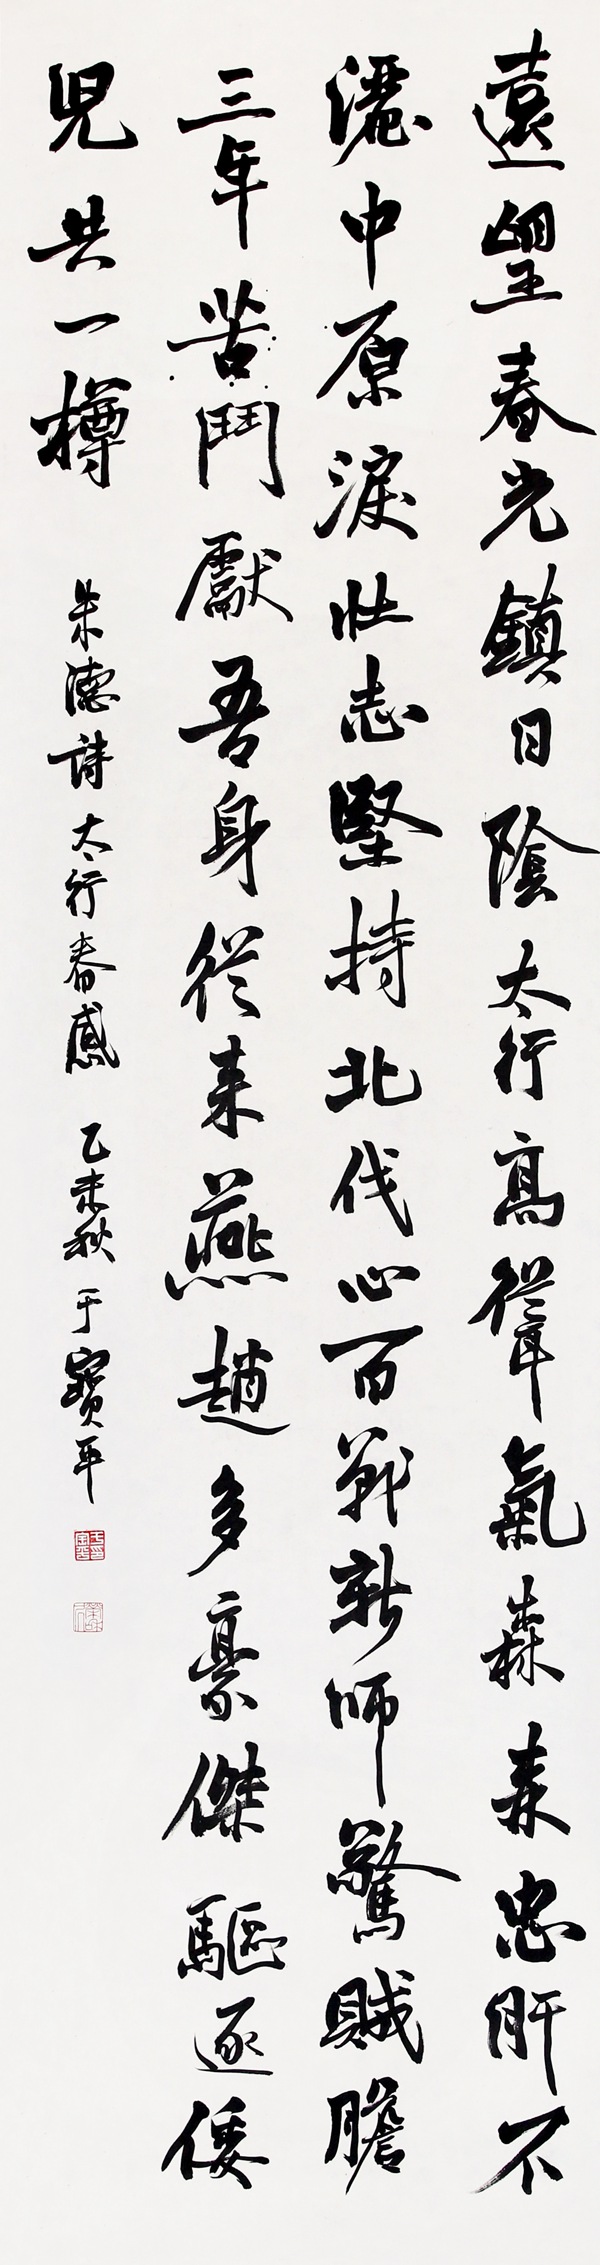 遠望春光鎮日陰太行高聳氣森森忠肝不
灑中原淚壯志堅持北伐心百戰新師驚賊膽
三年苦鬥獻吾身從來燕趙多豪傑驅逐倭
児共一樽
朱德詩太行春感 乙未秋于寶平